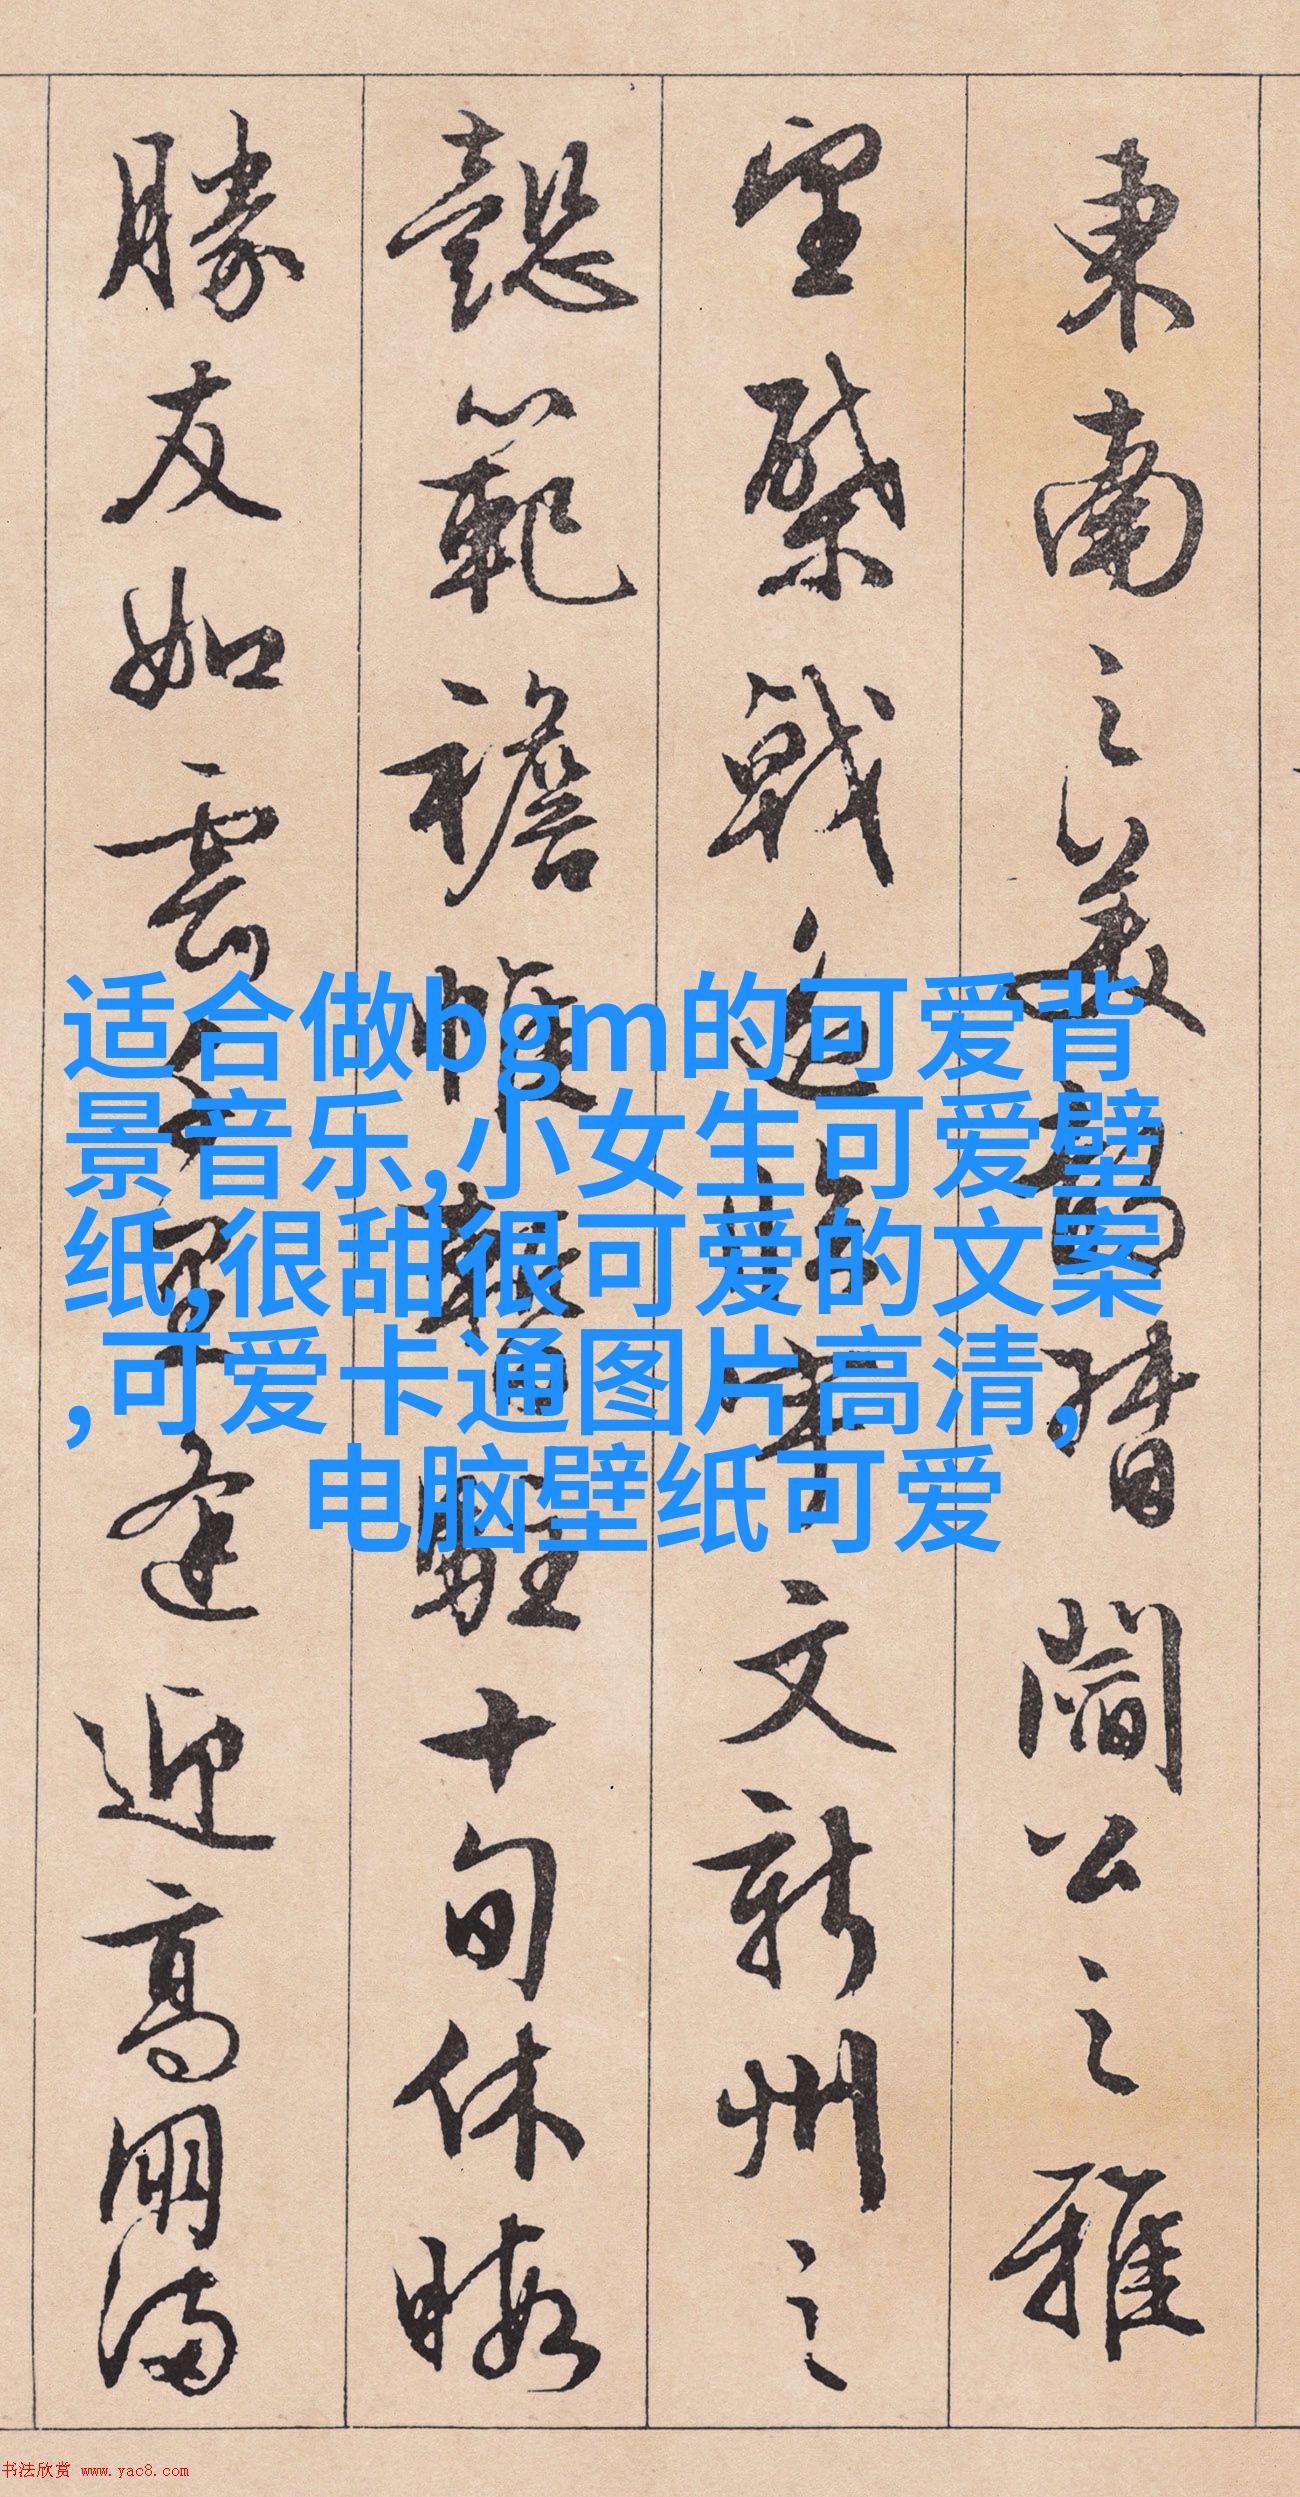 東南之美都督閻公之雅
望棨戟遙臨宇文新州之
懿範襜帷暫駐十旬休暇
勝友如雲千里逢迎高朋滿
适合做bgm的可爱背
景音乐,小女生可爱壁
纸,很甜很可爱的文案
,可爱卡通图片高清,
电脑壁纸可爱
书法欣赏 www.yac8.com